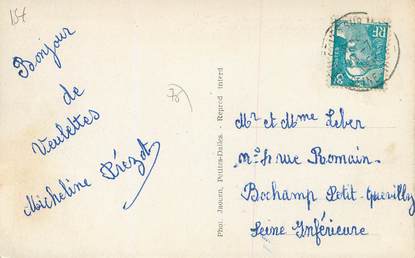 154
Bonjour
de
Veulettes
Micheline Prézot
Phot. Jaouen, Petites-Dalles. - Reprod interd
RF
Mr et Mme Leber
rue Romain
Bochamp Petit-Quevilly
Seine Inférieure